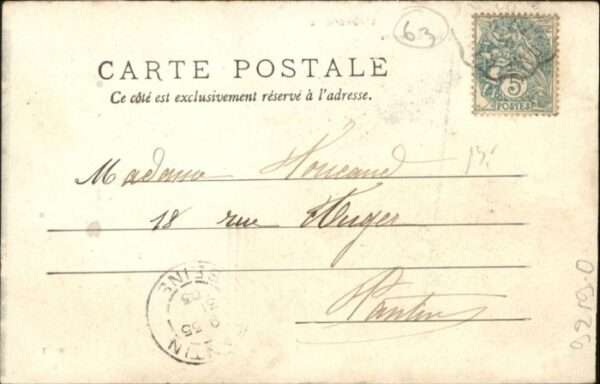 63
CARTE POSTALE
Ce côté est exclusivement réservé à l'adresse.
5
POSTES
Madame
18 rue Auger
Pantin
PANTIN
55
9219.0